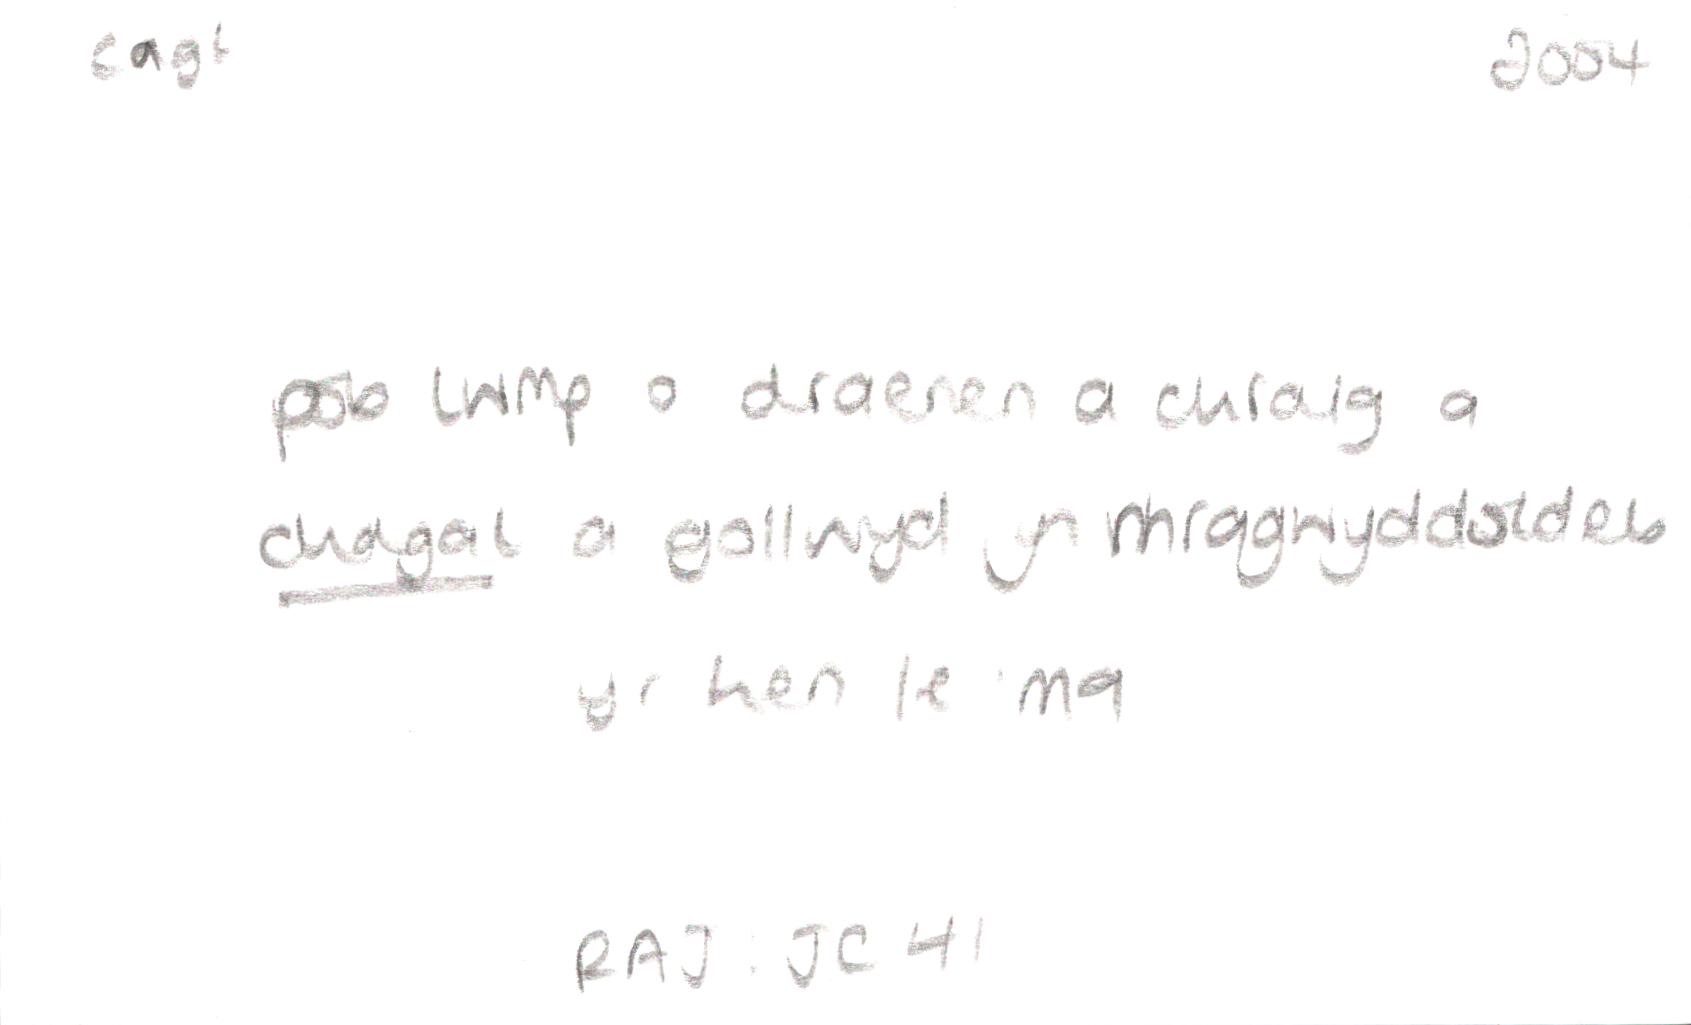 cagl 2004
pob lwmp o draenen a chraig a
chagal a gollwyd yn mhragwyddoldeb
yr hen le 'ma
RAJ : JC 41